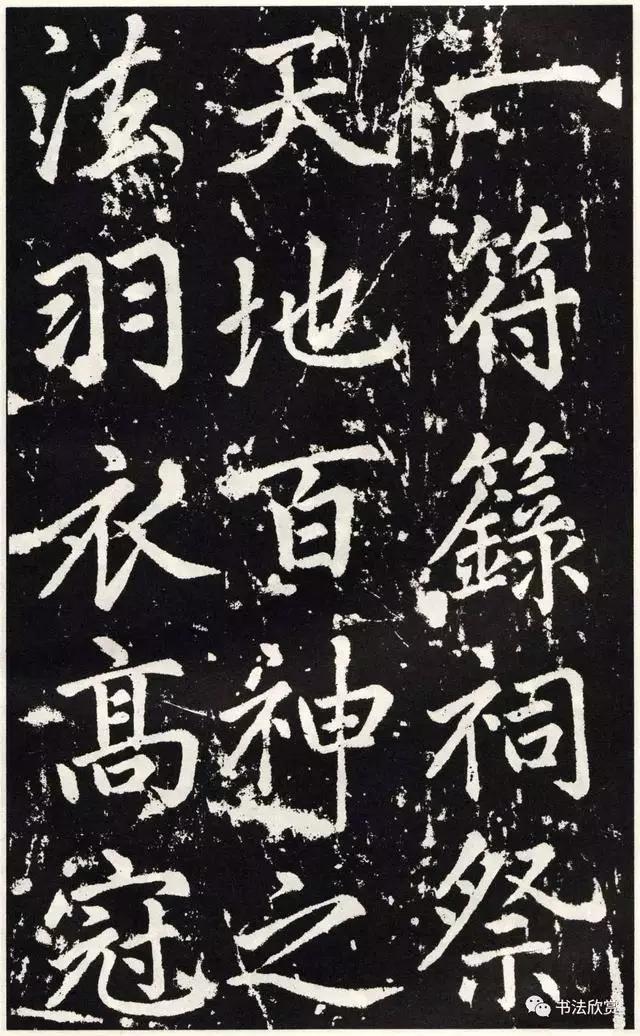 一符籙祠祭
天地百神之
法羽衣髙冠
书法欣赏